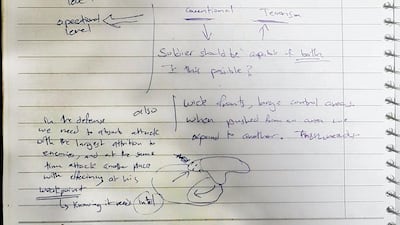 operational
level
Conventional
Terrorism
Soldier should be capable of both.
Is this possible?
also
wide fronts, large control areas
when pushed from an area we
expand to another.
In the defense
we need to absorb attack
with the largest attrition to
enemies, and at the same
time attack another place
with efficiency at his
weak point
↳ Knowing it needs Intel